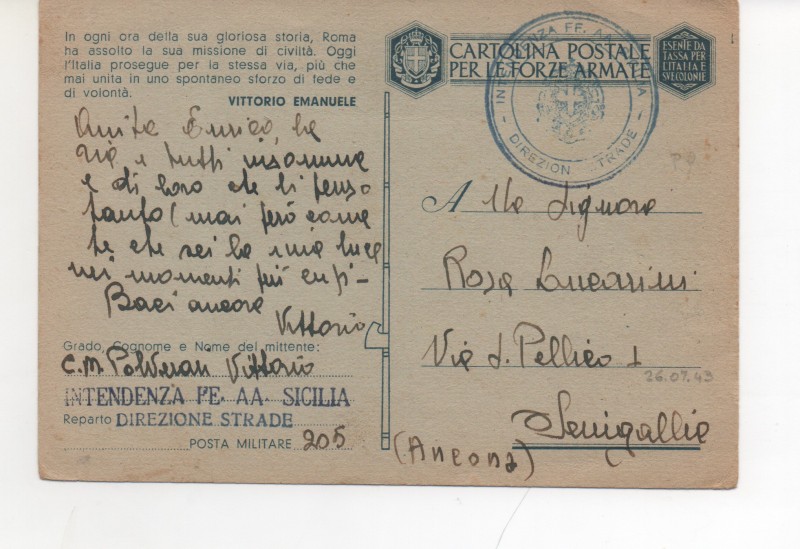 In ogni ora della sua gloriosa storia, Roma
ha assolto la sua missione di civiltà. Oggi
l'Italia prosegue per la stessa via, più che
mai unita in uno spontaneo sforzo di fede e
di volontà.
VITTORIO EMANUELE
Anita Enrico, la
zia e tutti insomma
e di loro che li penso
tanto (mai però come
te che sei la mia luce
nei momenti più cupi-
Baci ancora
Vittorio
Grado, Cognome e Nome del mittente:
C.M. Polverari Vittorio
INTENDENZA FF. AA. SICILIA
Reparto DIREZIONE STRADE
POSTA MILITARE 205
CARTOLINA POSTALE
PER LE FORZE ARMATE
ESENTE DA
TASSA PER
L'ITALIA E
SVE COLONIE
INTENDENZA FF. AA.
DIREZION STRADE
Alla Signora
Rosa Lucarini
Via S. Pellico 1
26.07.43
Senigallia
(Ancona)